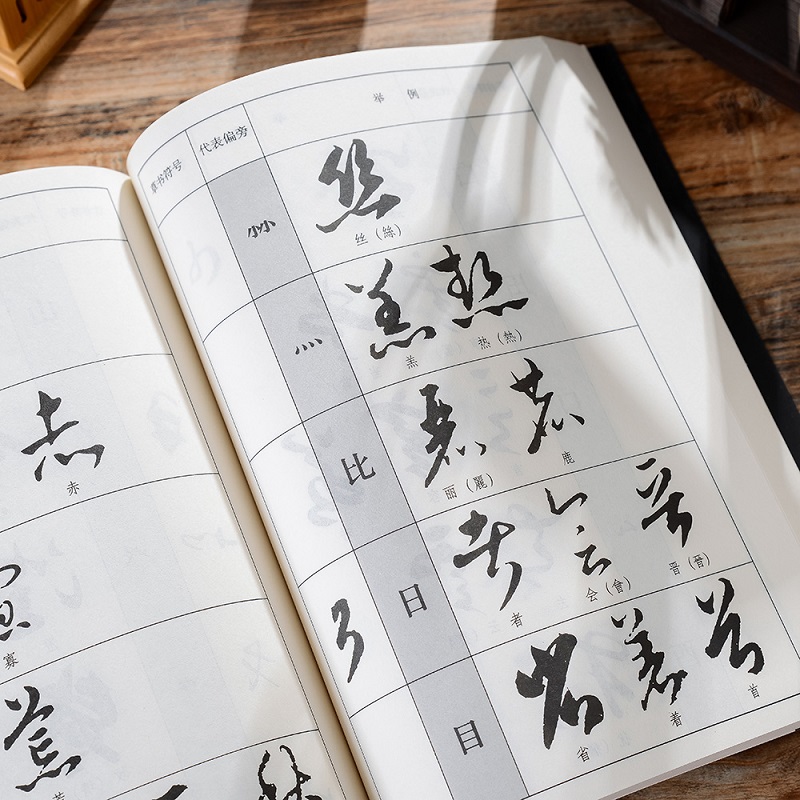 赤
寡
草书符号 代表偏旁 举例
丝（絲）
灬
羔 热（熱）
比
丽（麗） 鹿
日
者 会（會） 晋（晉）
目
省 着 首